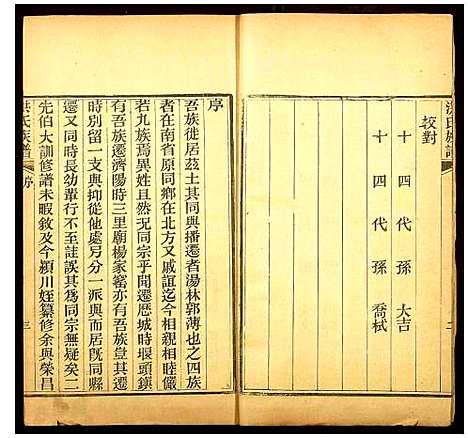 洪氏族譜
二
較對
十四代孫 大吉
十四代孫 喬栻
序
吾族徙居茲土其同與播遷者湯林郭薄也之四族
者出在南省原同鄉在北方又戚誼迄今相親相睦儼
若九族焉異姓且然况同宗乎聞遷歷城時堰頭鎮
有吾族遷濟陽時三里廟楊家窰亦有吾族豈其遷
時别留一支與抑從他處另分一派與而居既同縣
遷又同時長幼輩行不至詿誤其爲同宗無疑矣二
先伯大訓修譜未暇敘及今潁川姪纂修余與榮昌
洪氏族譜
序
三